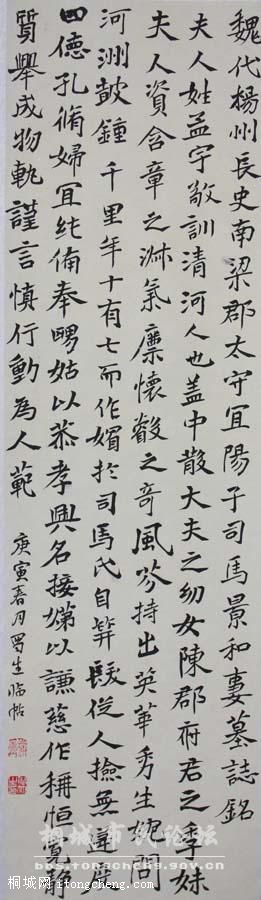 魏代楊州長史南梁郡太守宜陽子司馬景和妻墓誌銘
夫人姓孟字敬訓清河人也盖中散大夫之幼女陳郡府君之季妹
夫人資含章之淑氣稟懷叡之奇風芬持出英華秀生婉問
河洲鼓鍾千里年十有七而作嬪於司馬氏自笄髮從人撿無違度
四德孔脩婦宜純備奉舅姑以恭孝興名接娣以謙慈作稱恒寬静
質舉成物軌謹言慎行動為人範
庚寅春月蜀生临帖
桐城市民论坛
bbs.tongcheng.cn
桐城网 itongcheng.com